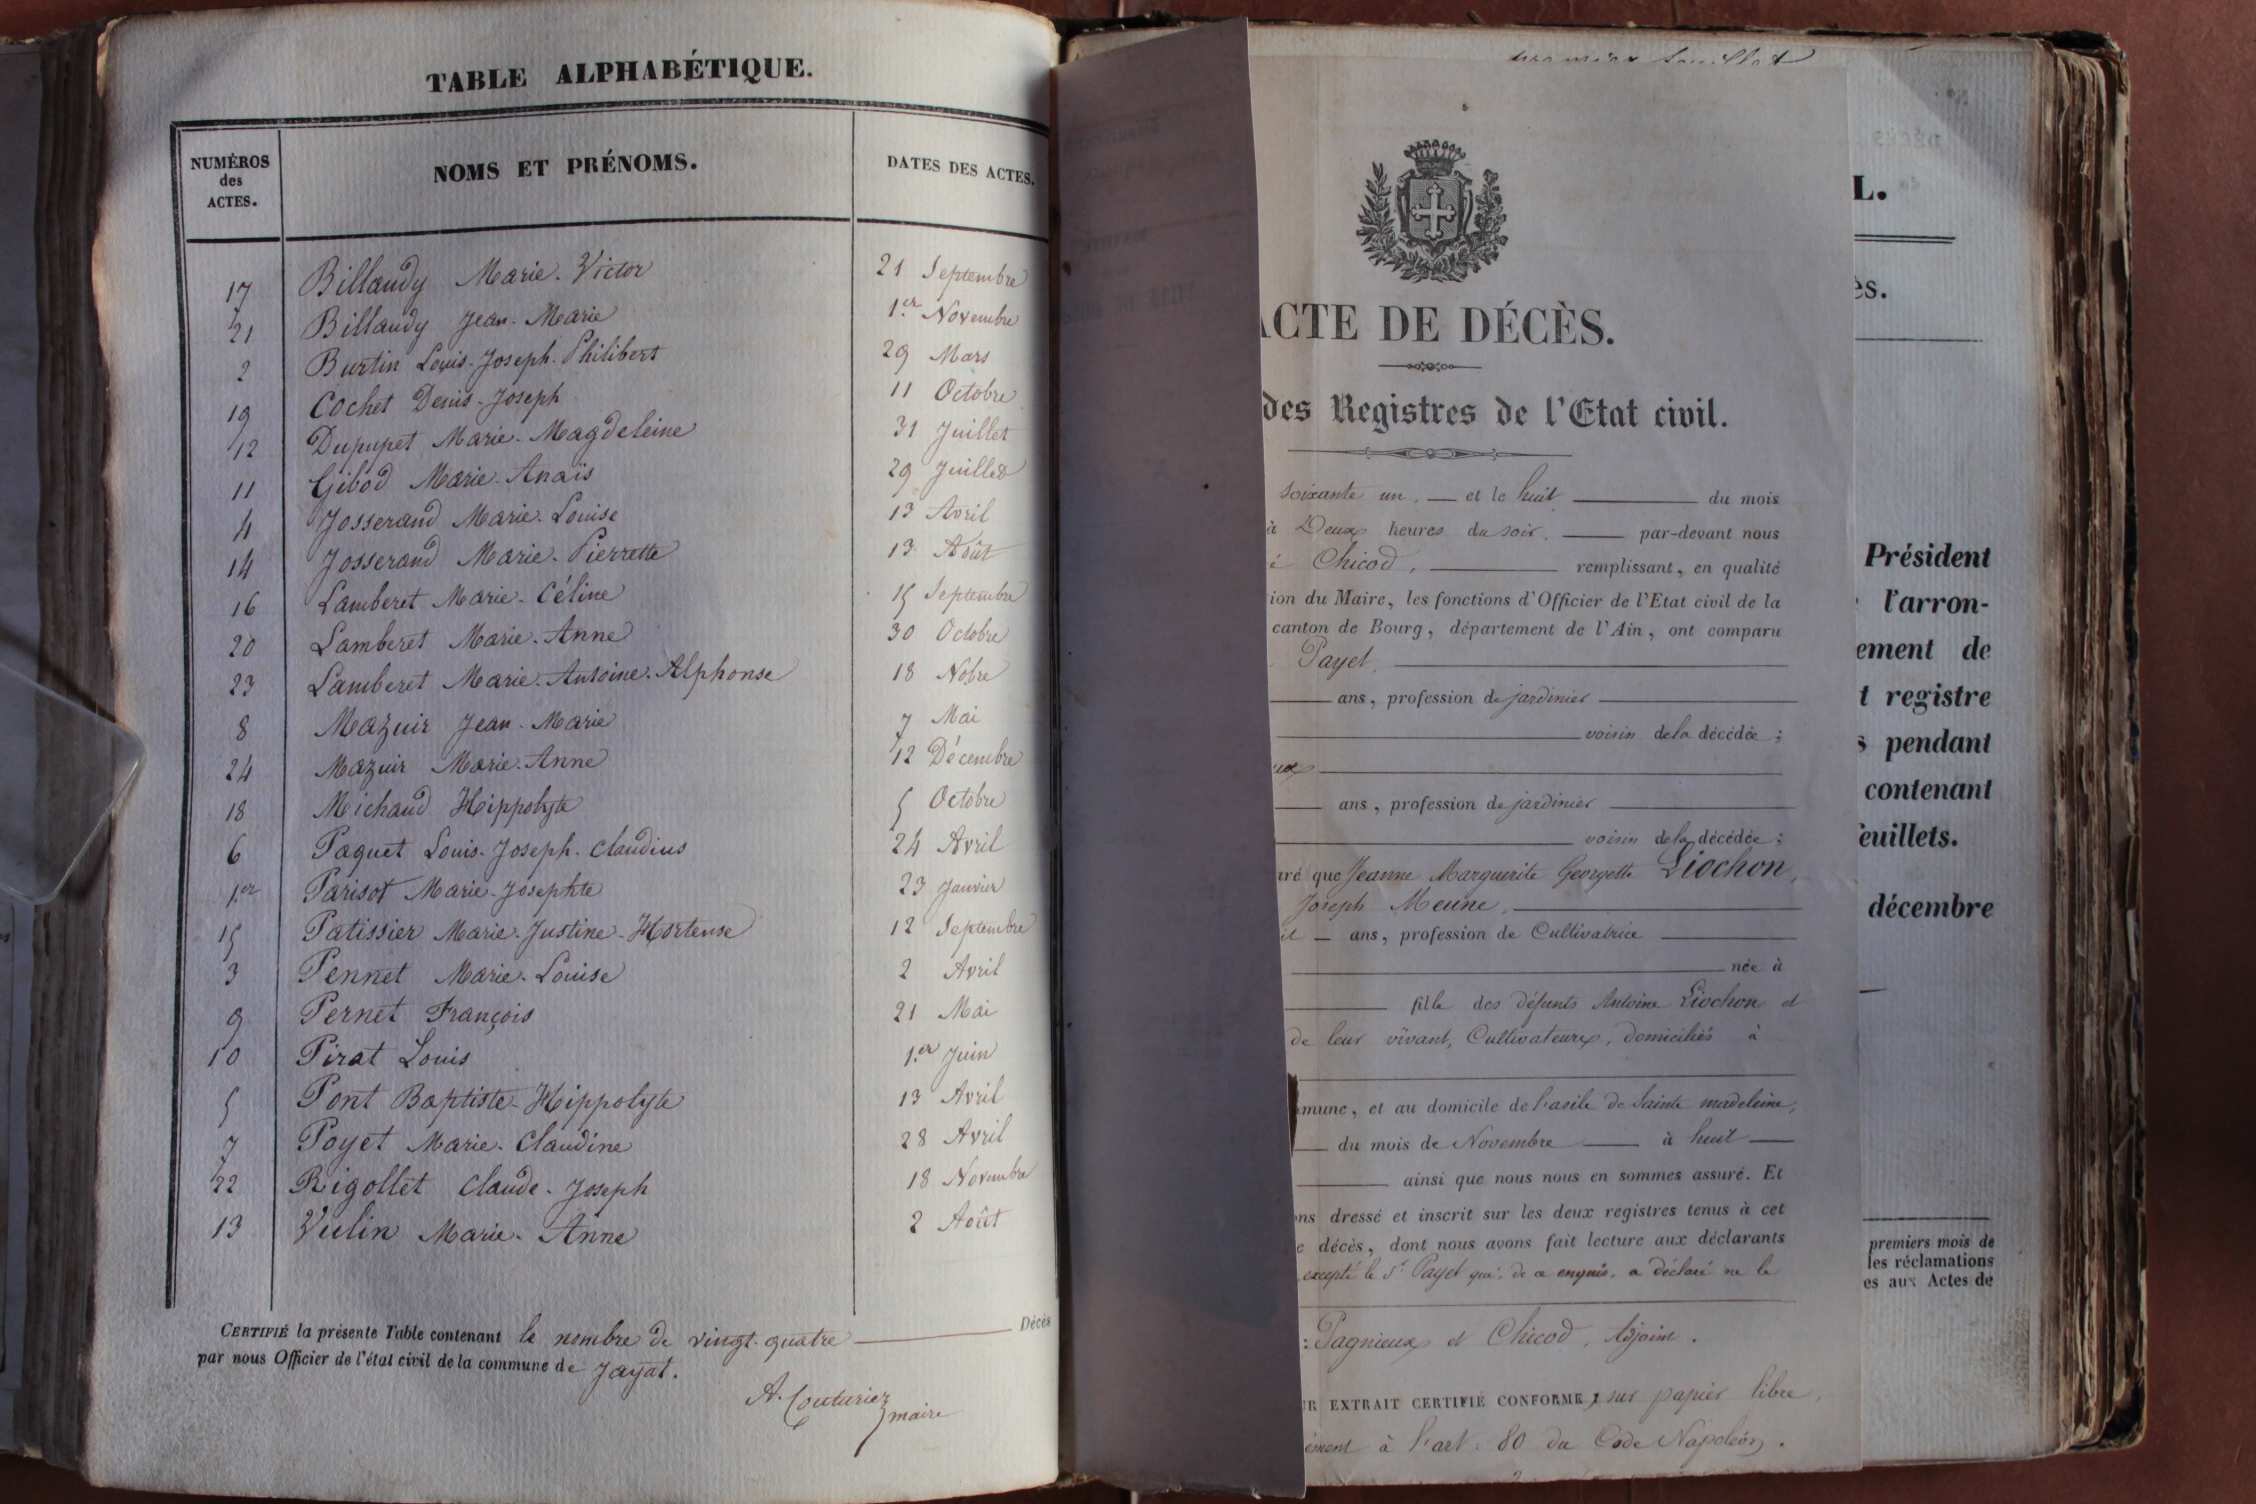 TABLE ALPHABÉTIQUE.
NUMÉROS des ACTES. NOMS ET PRÉNOMS. DATES DES ACTES.
17 Billaudy Marie-Victor 21 Septembre
21 Billaudy Jean-Marie 1.er Novembre
2 Burtin Louis-Joseph-Philibert 29 Mars
19 Cochet Denis-Joseph 11 Octobre
12 Dupupet Marie-Magdeleine 31 Juillet
11 Gibod Marie-Anaïs 29 Juillet
4 Josserand Marie-Louise 13 Avril
14 Josserand Marie-Pierrette 13 Août
16 Lamberet Marie-Céline 15 Septembre
20 Lamberet Marie-Anne 30 Octobre
23 Lamberet Marie-Antoine-Alphonse 18 Nobre
8 Mazuir Jean-Marie 7 Mai
24 Mazuir Marie-Anne 12 Décembre
18 Michaud Hippolyte 5 Octobre
6 Paquet Louis-Joseph-Claudius 24 Avril
1.er Parisot Marie-Josephte 23 Janvier
15 Patissier Marie-Justine-Hortense 12 Septembre
3 Pennet Marie-Louise 2 Avril
9 Pernet François 21 Mai
10 Pirat Louis 1.er Juin
5 Pont Baptiste-Hippolyte 13 Avril
7 Poyet Marie-Claudine 28 Avril
22 Rigollet Claude-Joseph 18 Novembre
13 Vulin Marie-Anne 2 Août
CERTIFIÉ la présente Table contenant le nombre de vingt-quatre Décès
par nous Officier de l'état civil de la commune de Jayat.
A. Couturier maire
premier feuillet
ACTE DE DÉCÈS.
des Registres de l'Etat civil.
soixante un. et le huit du mois
à Deux heures du soir. par-devant nous
Chicod, remplissant, en qualité
ion du Maire, les fonctions d'Officier de l'Etat civil de la
canton de Bourg, département de l'Ain, ont comparu
Payet.
ans, profession de jardinier
voisin de la décédée;
ux
ans, profession de jardinier
voisin de la décédée;
ré que Jeanne Marguerite Georgette Liochon,
Joseph Meune,
it ans, profession de Cultivatrice
née à
fille des défunts Antoine Liochon et
de leur vivant, Cultivateurs, domiciliés à
mune, et au domicile de l'asile de Sainte madeleine,
du mois de Novembre à huit
ainsi que nous nous en sommes assuré. Et
ns dressé et inscrit sur les deux registres tenus à cet
e décès, dont nous avons fait lecture aux déclarants
excepté le Sr. Payet qui, de ce enquis, a déclaré ne le
: Pagnieux et Chicod, Adjoint.
UR EXTRAIT CERTIFIÉ CONFORME, sur papier libre,
ément à l'art. 80 du Code Napoléon.
L.
ès.
Président
l'arron-
ement de
t registre
s pendant
contenant
feuillets.
décembre
premiers mois de
les réclamations
es aux Actes de